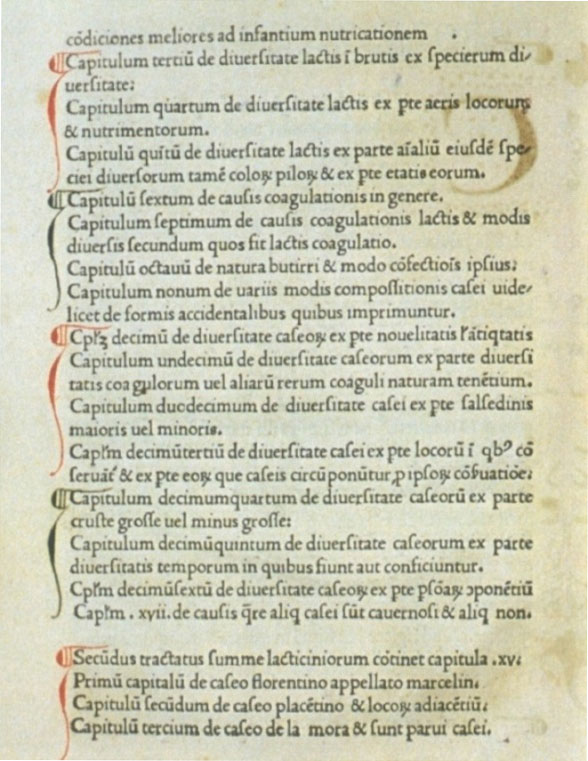 cõdiciones meliores ad infantium nutricationem .
Capitulum tertiũ de diuerſitate lactis ĩ brutis ex ſpecierum di⸗
uerſitate:
Capitulum quartum de diuerſitate lactis ex pte aeris locorum
& nutrimentorum.
Capitulũ quĩtũ de diuerſitate lactis ex parte aĩaliũ eiuſdẽ ſpe⸗
ciei diuerſorum tamẽ coloꝝ piloꝝ & ex pte etatis eorum.
Capitulũ ſextum de cauſis coagulationis in genere.
Capitulum ſeptimum de cauſis coagulationis lactis & modis
diuerſis ſecundum quos fit lactis coagulatio.
Capitulũ octauũ de natura butirri & modo cõfectiõis ipſius:
Capitulum nonum de uariis modis compoſſitionis caſei uide⸗
licet de formis accidentalibus quibus imprimuntur.
Cpĩꝝ decimũ de diuerſitate caſeoꝝ ex pte nouelitatis ĩ ãtiqtatis
Capitulum undecimũ de diuerſitate caſeorum ex parte diuerſi
tatis coagulorum uel aliarũ rerum coaguli naturam tenẽtium.
Capitulum duodecimum de diuerſitate caſei ex pte ſalſedinis
maioris uel minoris.
Capĩm decimũtertiũ de diuerſitate caſei ex pte locorũ ĩ qbꝰ cõ
ſeruãt̃ & ex pte eoꝝ que caſeis circũponũtur ꝓ ipſoꝝ cõſuatiõe:
Capitulum decimumquartum de diuerſitate caſeorũ ex parte
cruſte groſſe uel minus groſſe:
Capitulum decimũquintum de diuerſitate caſeorum ex parte
diuerſitatis temporum in quibus fiunt aut conficiuntur.
Cpĩm decimũſextũ de diuerſitate caſeoꝝ ex pte pſõaꝝ ↄponẽtiũ
Capĩm . xvii. de cauſis q̃re aliq caſei ſũt cauernoſi & aliq non.
Secũdus tractatus ſumme lacticiniorum cõtinet capitula .xv.
Primũ capitulũ de caſeo florentino appellato marcelin.
Capitulũ ſecũdum de caſeo placẽtino & locoꝝ adiacẽtiũ.
Capitulũ tercium de caſeo de la mora & ſunt parui caſei.